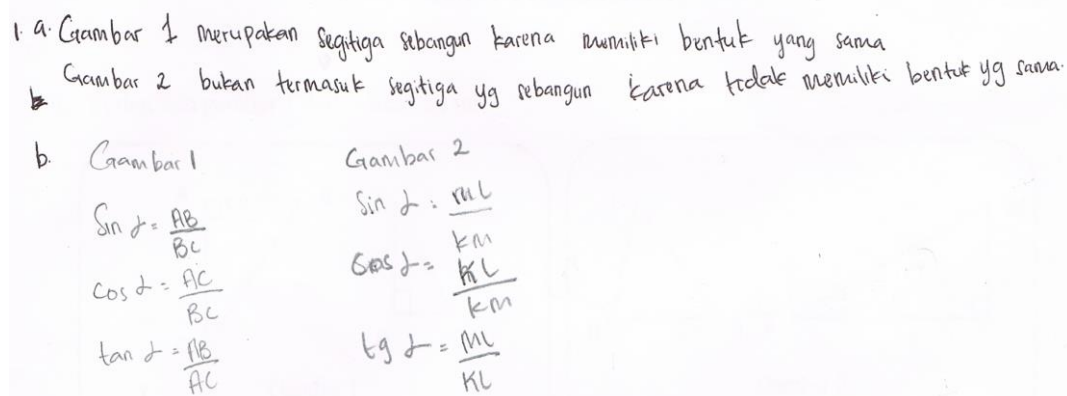 1. a. Gambar 1 merupakan segitiga sebangun karena memiliki bentuk yang sama
Gambar 2 bukan termasuk segitiga yg sebangun karena tidak memiliki bentuk yg sama.
b. Gambar 1
Sin α = AB/BC
cos α = AC/BC
tan α = AB/AC
Gambar 2
Sin α : ML/KM
Cos α = KL/KM
tg α = ML/KL